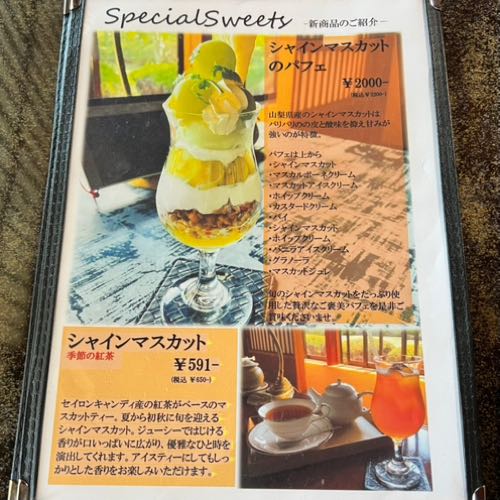 SpecialSweets -新商品のご紹介-
シャインマスカット
のパフェ
￥2000-
(税込￥2200-)
山梨県産のシャインマスカットは
パリパリのの皮と酸味を抑え甘みが
強いのが特徴。
パフェは上から
・シャインマスカット
・マスカルポーネクリーム
・マスカットアイスクリーム
・ホイップクリーム
・カスタードクリーム
・パイ
・シャインマスカット
・ホイップクリーム
・バニラアイスクリーム
・グラノーラ
・マスカットジュレ
旬のシャインマスカットをたっぷり使
用した贅沢なご褒美パフェを是非ご
賞味くださいませ。
シャインマスカット
季節の紅茶
￥591-
(税込 ￥650-)
セイロンキャンディ産の紅茶がベースのマ
スカットティー。夏から初秋に旬を迎える
シャインマスカット。ジューシーではじける
香りが口いっぱいに広がり、優雅なひと時を
演出してくれます。アイスティーにしてもしっ
かりとした香りをお楽しみいただけます。